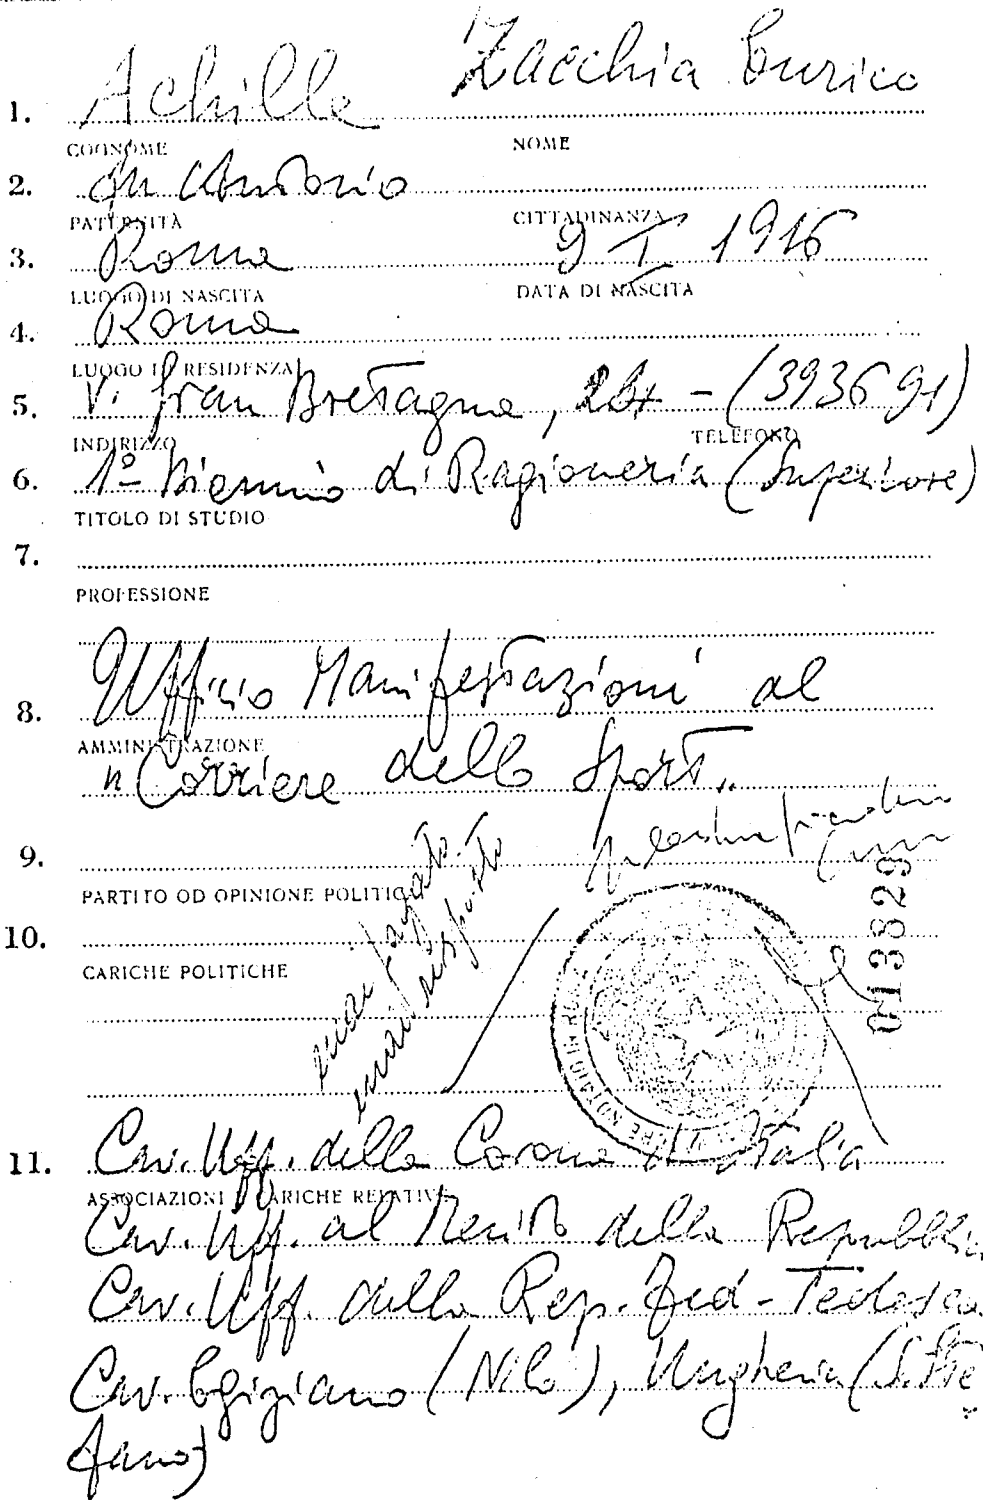 1. Achille Zacchia Enrico
COGNOME NOME
2. fu Antonio
PATERNITÀ CITTADINANZA
3. Roma 9 I 1916
LUOGO DI NASCITA DATA DI NASCITA
4. Roma
LUOGO DI RESIDENZA
5. V. Gran Bretagna, - (393691)
INDIRIZZO TELEFONO
6. 1º Biennio di Ragioneria (Superiore)
TITOLO DI STUDIO
7.
PROFESSIONE
8. Ufficio Manifestazioni al
AMMINISTRAZIONE
"Corriere dello Sport"
9.
PARTITO OD OPINIONE POLITICA
10.
CARICHE POLITICHE
mai pagato
mai risposto
013829
11. Cav. Uff. della Corona d'Italia
ASSOCIAZIONI E CARICHE RELATIVE
Cav. Uff. al Merito della Repubblica
Cav. Uff. della Rep. Fed-Tedesca
Cav. Egiziano (Nilo), Ungheria (S. Ste
fano)